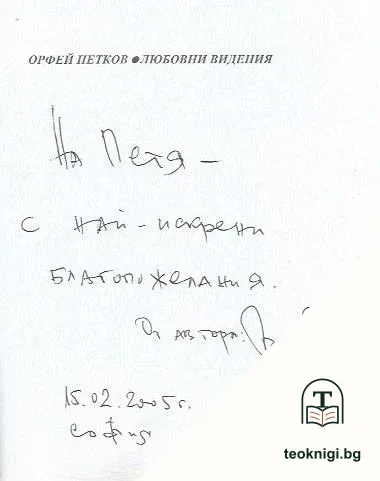 ОРФЕЙ ПЕТКОВ ● ЛЮБОВНИ ВИДЕНИЯ
На Петя –
с най-искрени
благопожелания.
От автора:
15.02.2005г.
София
T
teoknigi.bg